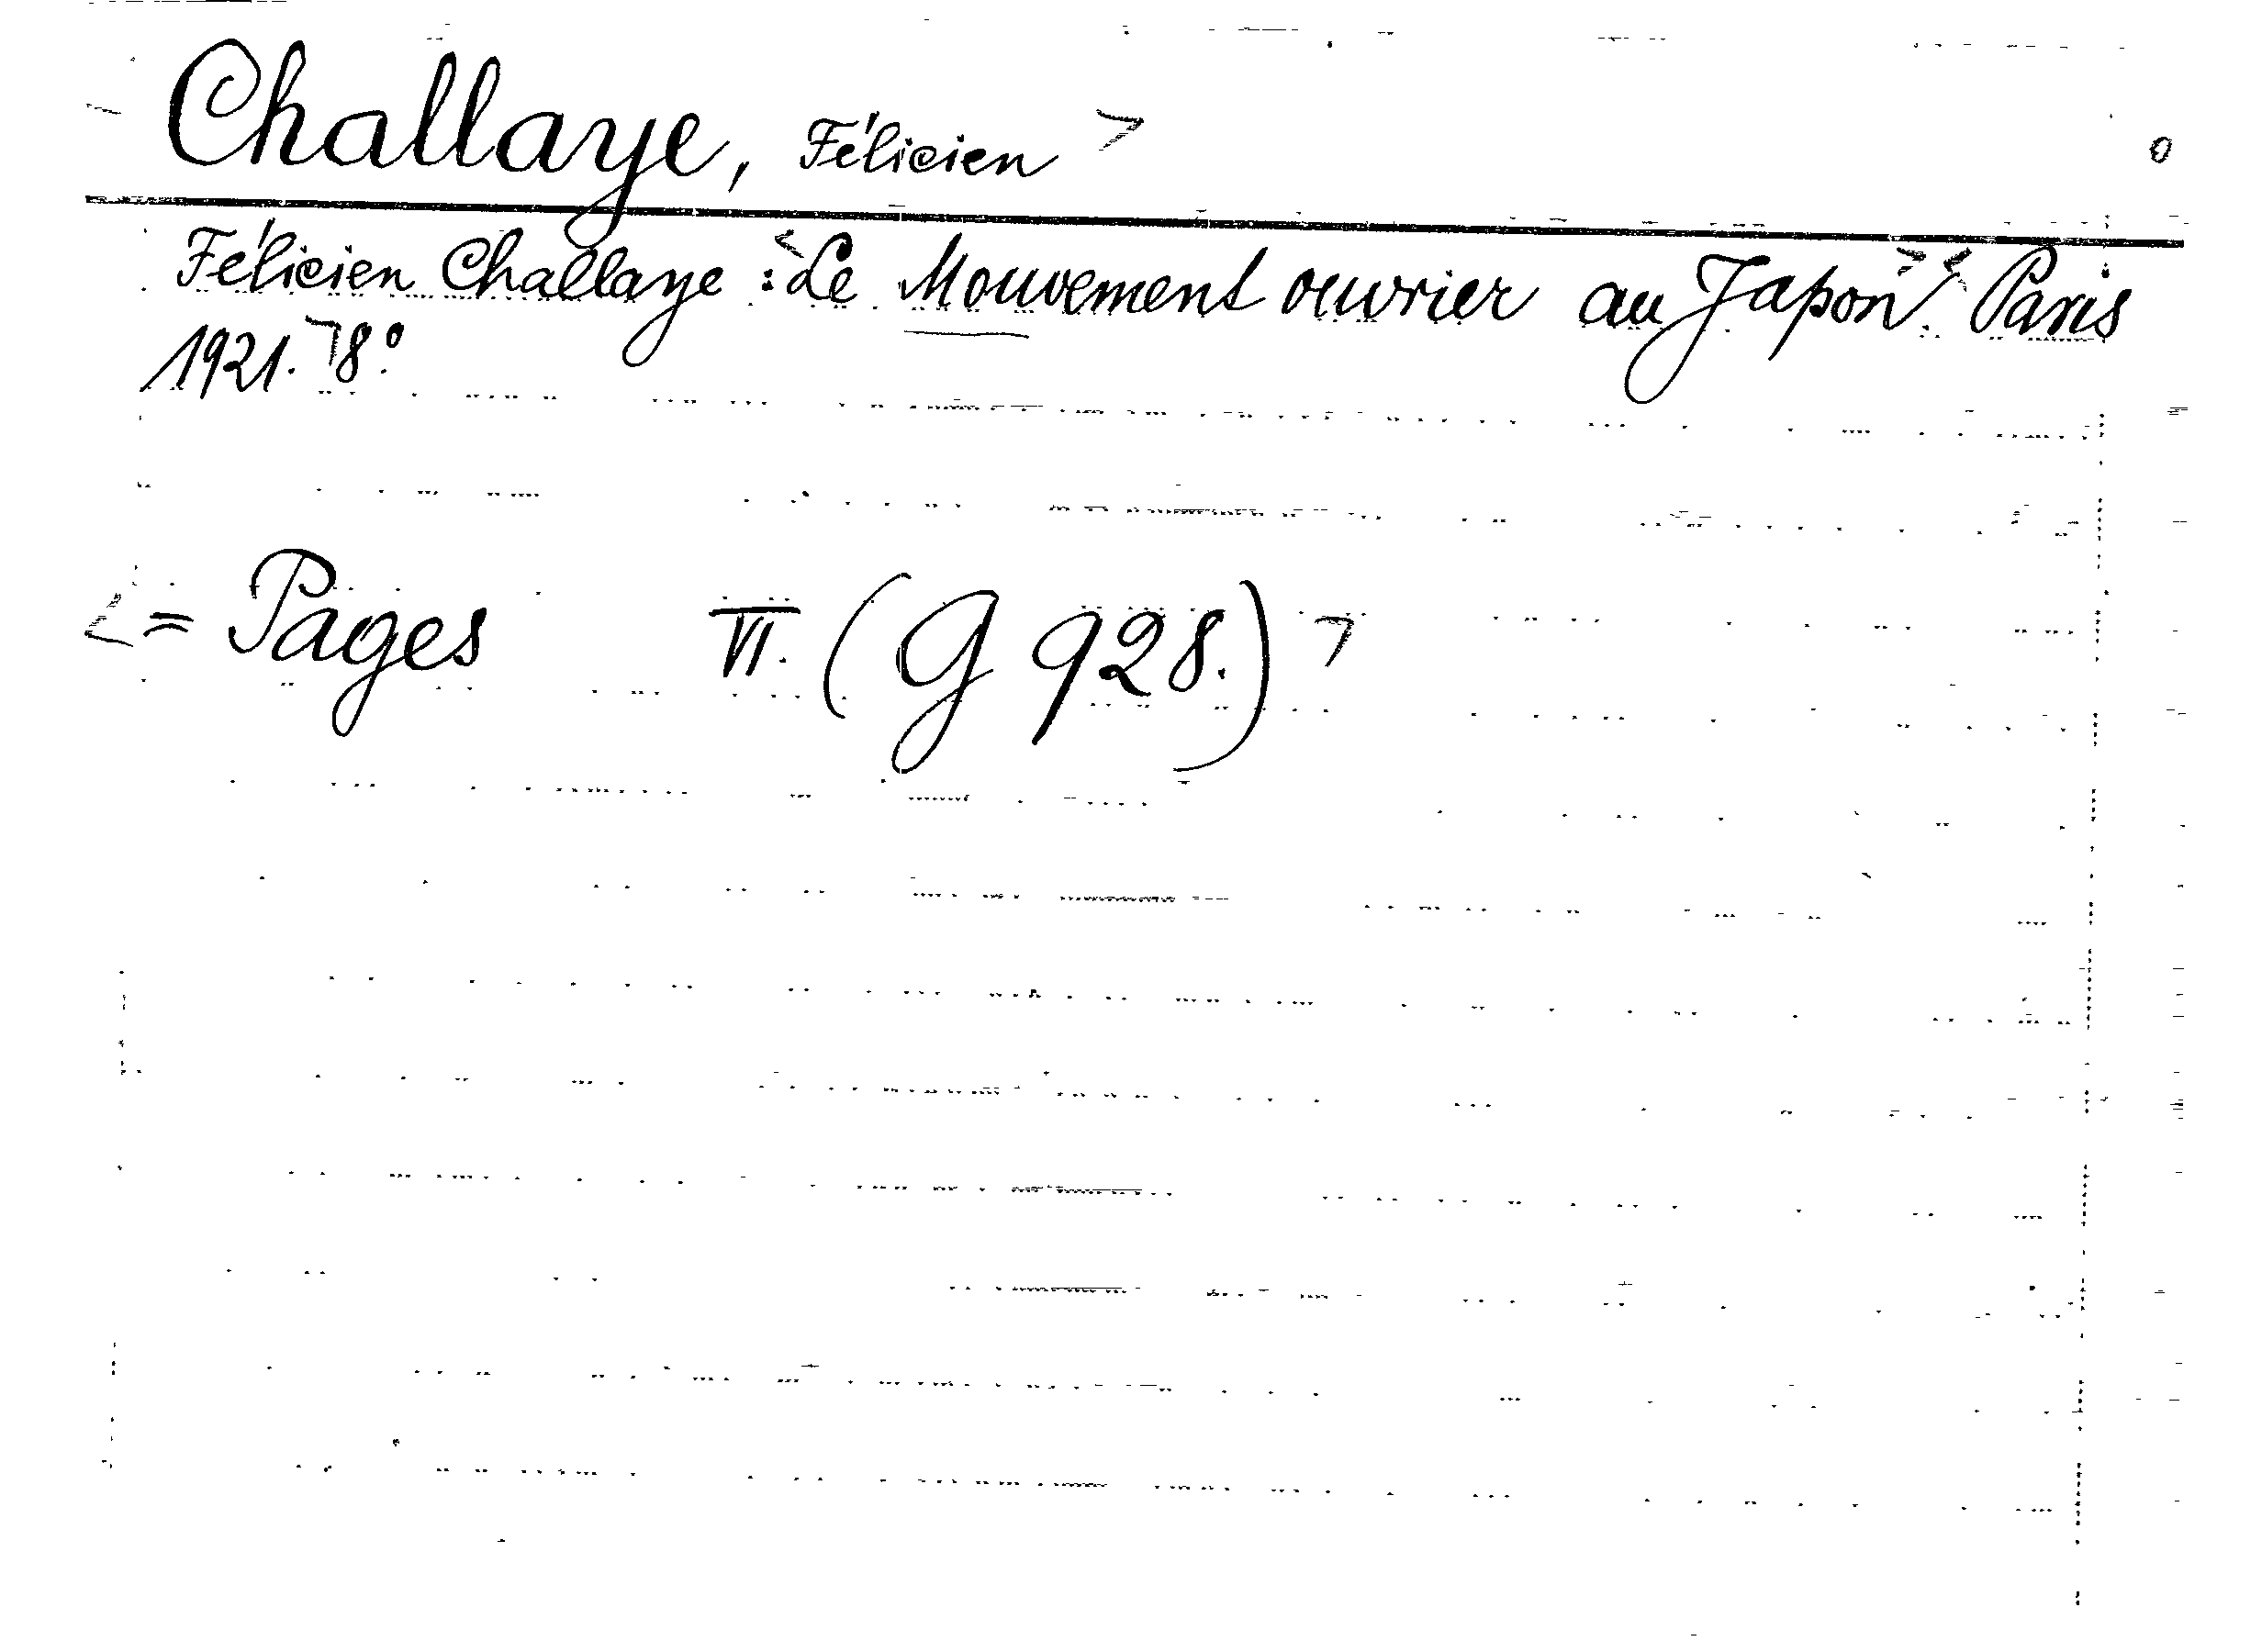 Challaye, Félicien
Félicien Challaye: Le Mouvement ouvrier au Japon. Paris
1921. 8°.
= Pages VI. (G 928.)